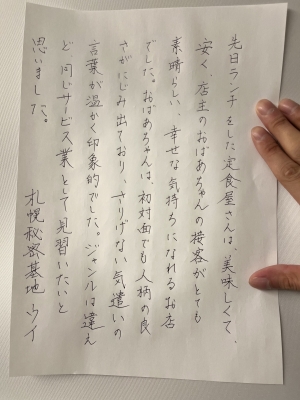 先日ランチをした定食屋さんは、美味しくて、
安く、店主のおばあちゃんの接客がとても
素晴らしい、幸せな気持ちになれるお店
でした。おばあちゃんは、初対面でも人柄の良
さがにじみ出ており、さりげない気遣いの
言葉が温かく印象的でした。ジャンルは違え
ど、同じサービス業として見習いたいと
思いました。
札幌秘密基地 ウイ